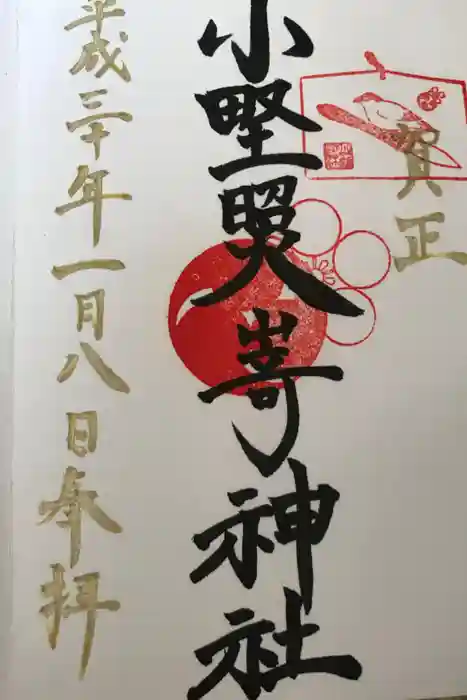 賀正
小野照崎神社
平成三十年一月八日奉拝